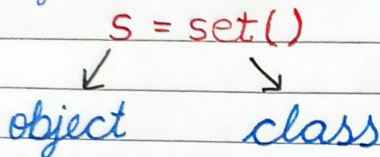 s = set()
object class